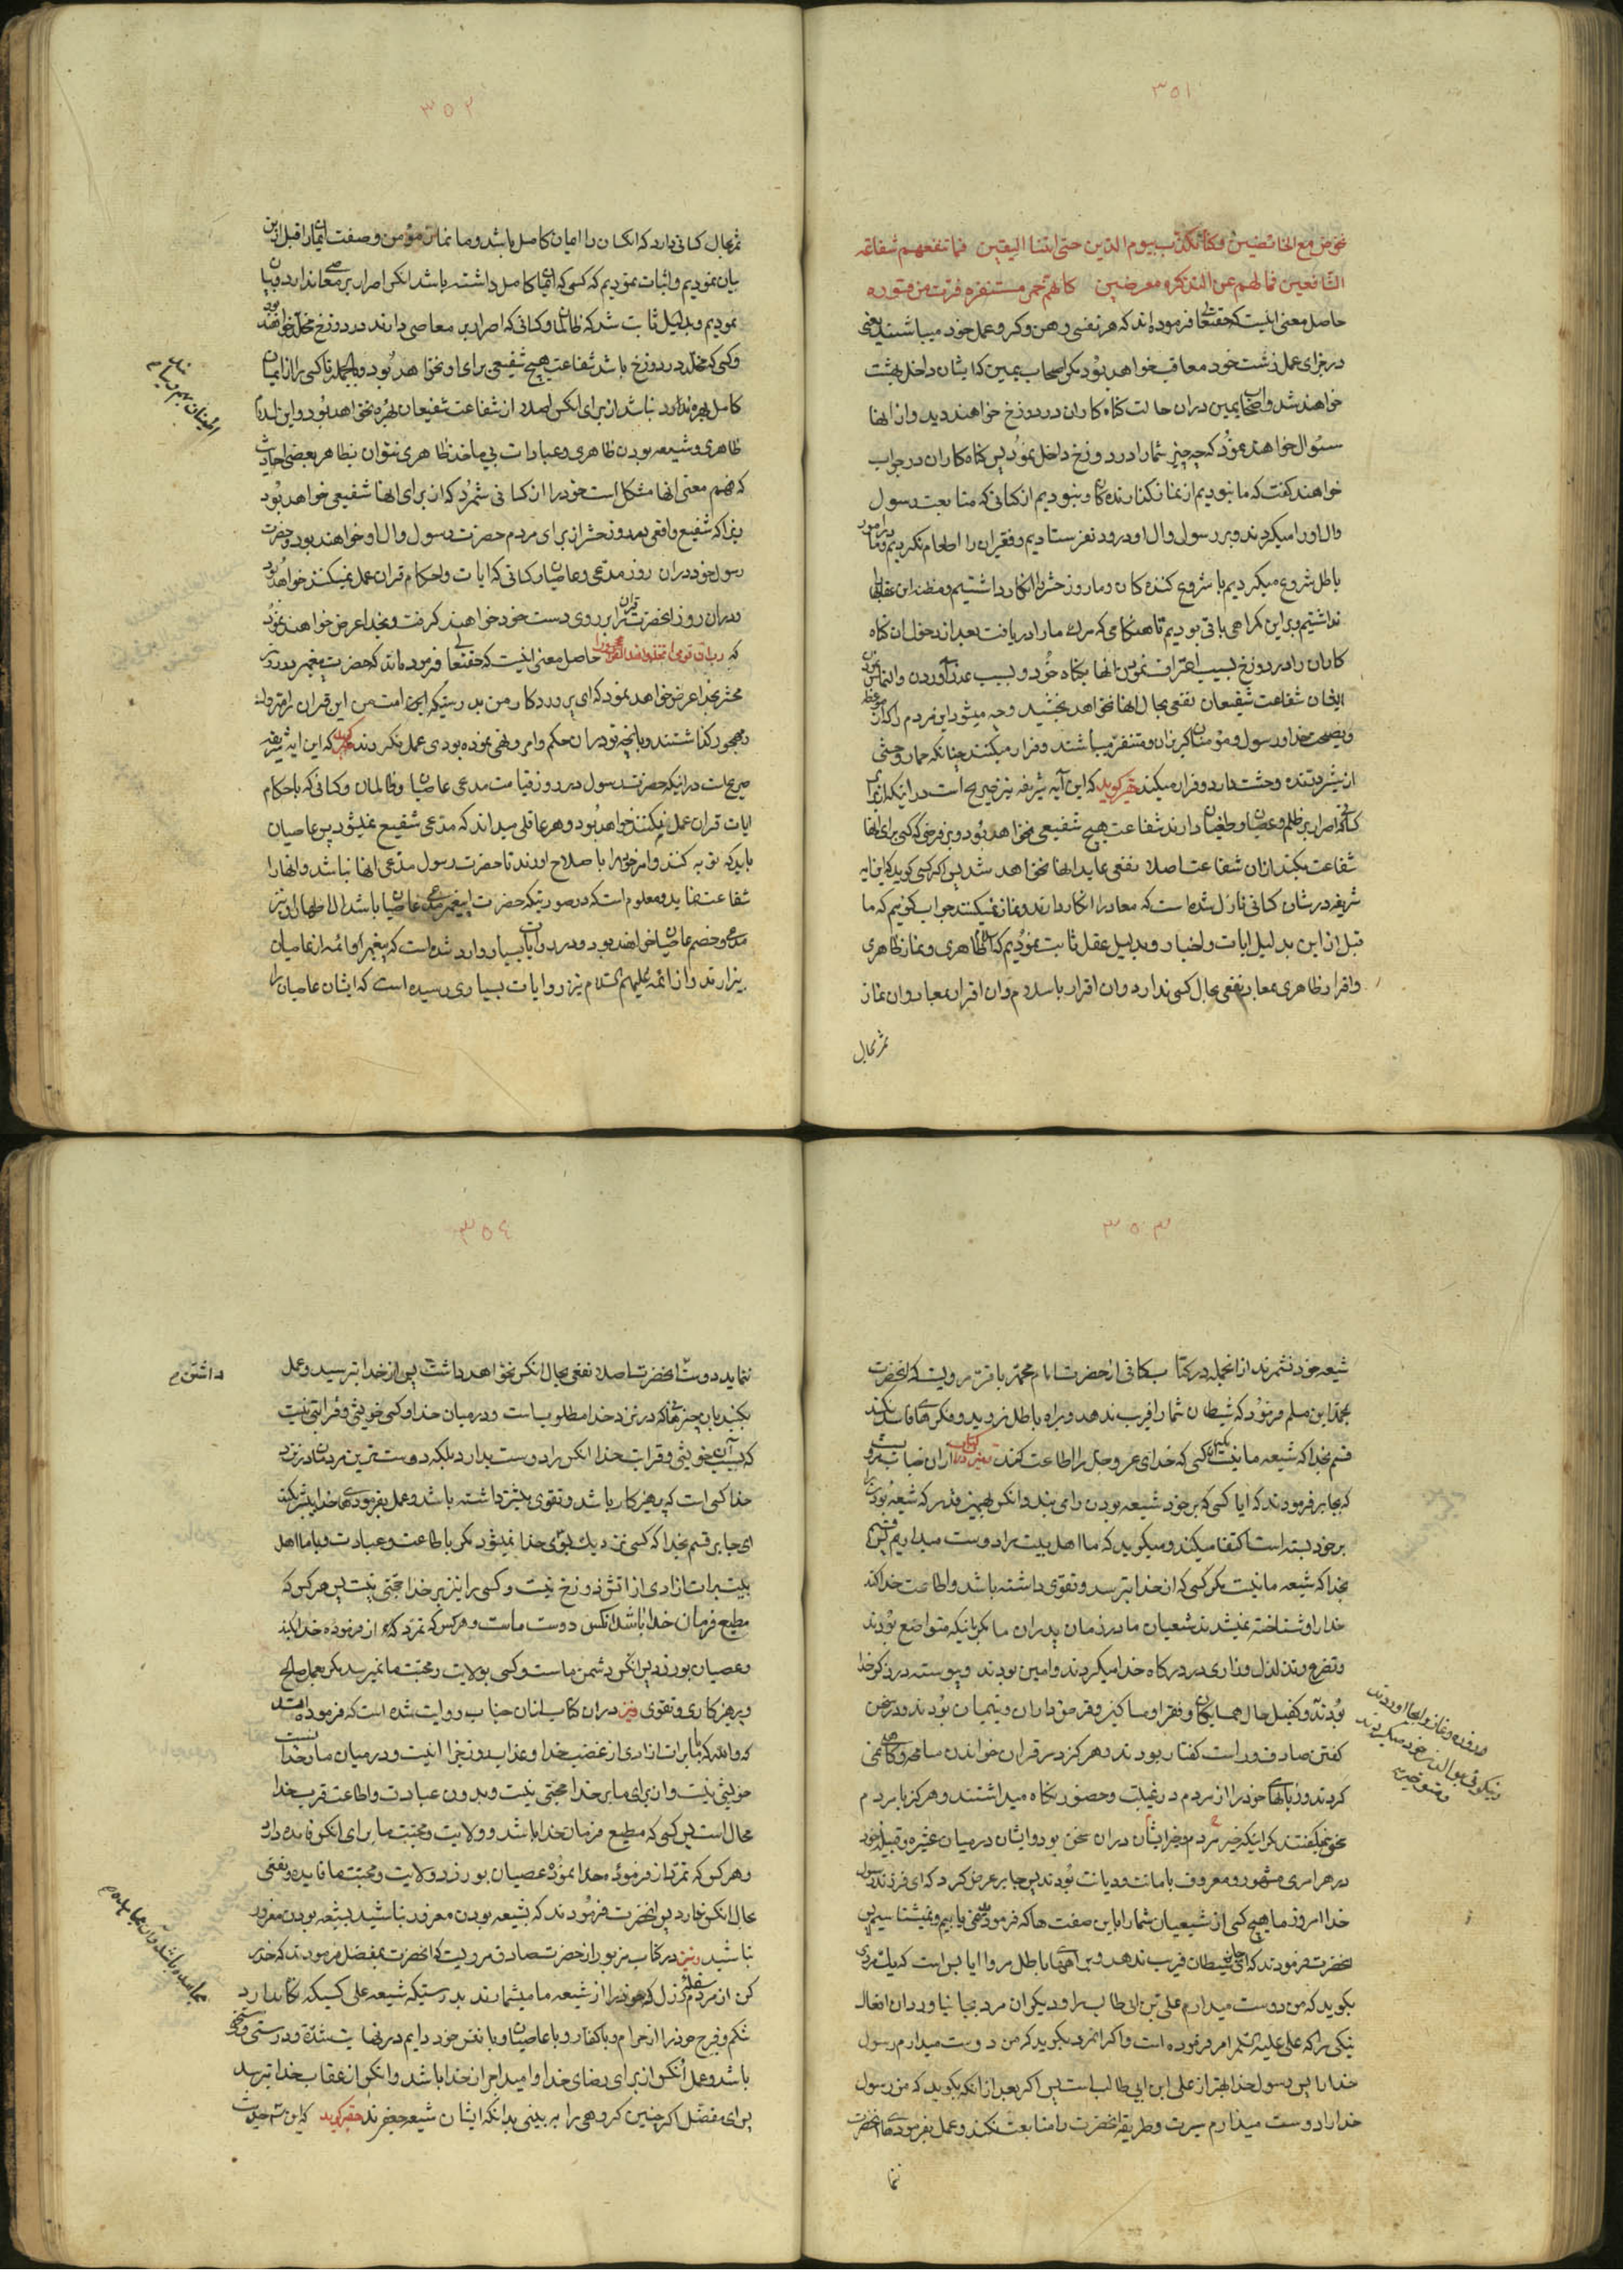 ۳۵۱
نخوض مع الخائضین و کنا نکذب بیوم الدین حتی اتینا الیقین فما تنفعهم شفاعة
الشافعین فما لهم عن التذکره معرضین کانهم حمر مستنفره فرت من قسوره
حاصل معنی اینست که حقتعالی فرموده اند که هر نفسی رهن و کرو عمل خود میباشند یعنی
در جزای عمل زشت خود معاقب خواهد بود مکر اصحاب یمین که ایشان داخل بهشت
خواهند شد و اصحاب یمین دران حالت کناه کاران در دوزخ خواهند دید و از انها
سئوال خواهند نمود که چه چیز شما را در دوزخ داخل نمود پس کناه کاران در جواب
خواهند کفت که ما نبودیم از نماز کذارنده کان و نبودیم از کسانی که متابعت رسول
وال او را میکردند و بر رسول وال او درود نفرستادیم و فقیران را اطعام نکردیم و ما در امور
باطل شروع میکردیم با شروع کننده کان و ما روز حشر را انکار داشتیم و مظنه این عقاب
نداشتیم و بر این کمراهی باقی بودیم تا هنکامی که مرک ما را دریافت بعد از دخول ان کناه
کاران را در دوزخ بسبب اعتراف نمودن انها بکناه خود و بسبب عذر آوردن و التماس
ایشان شفاعت شفیعان نفعی بحال انها نخواهد بخشید و چه میشود این مردم را که از موعظه
و نصیحت خدا و رسول و مؤمنان کریزان و متنفر میباشند و فرار میکنند چنانکه حمار وحشی
از شیر درنده وحشت دارد و فرار میکند حقیر کوید که این آیه شریفه نیز صریح است در اینکه از برای
کسانیکه اصرار بر ظلم و عصیان و طغیان دارند شفاعت هیچ شفیعی نخواهد بود و بر فرضی که کسی برای انها
شفاعت بکند از ان شفاعت اصلا نفعی عاید انها نخواهد شد پس اگر کسی کوید که این ایه
شریفه در شان کسانی نازل شده است که معاد را انکار دارند و نماز نمیکنند جواب کوئیم که ما
قبل از این بدلیل ایات و اخبار و بدلیل عقل ثابت نمودیم که اسلام ظاهری و نماز ظاهری
و اقرار ظاهری بمعاد نفعی بحال کسی ندارد و ان اقرار باسلام و ان اقرار بمعاد و ان نماز
ثمر بحال
۳۵۲
ثمر بحال کسانی دارد که انکسان را ایمان کامل باشد و ما نماز مؤمن و صفت ایمان را قبل از این
بیان نمودیم و اثبات نمودیم که کسی که ایمان کامل داشته باشد انکس اصرار بر معاصی ندارد و بیان
نمودیم و بدلیل ثابت شد که ظالمان و کسانی که اصرار بر معاصی دارند در دوزخ مخلد خواهند بود
و کسی که مخلد در دوزخ باشد شفاعت هیچ شفیعی برای او نخواهد بود و بالجمله تا کسی را از ایمان
کامل بهره نباشد از برای انکس اصلا از شفاعت شفیعان بهره نخواهد بود و این اسلام
ظاهری و شیعه بودن ظاهری و عبادات بی ماخذ ظاهری نتوان بظاهر بعضی احادیث
که فهم معنی انها مشکل است خود را از کسانی شمرد که از برای انها شفیعی خواهد بود
زیرا که شفیع واقعی در روز حشر از برای مردم حضرت رسول وال او خواهند بود و حضرت
رسول خود در ان روز مدعی و عاصیان و کسانی که ایات و احکام قران عمل نمیکنند خواهد بود
و در ان روز انحضرت قران را بر روی دست خود خواهند کرفت و بخدا عرض خواهند نمود
که رب ان قومی اتخذوا هذا القران مهجورا حاصل معنی اینست که حقتعالی فرموده اند که حضرت پیغمبر در روز
محشر بخدا عرض خواهد نمود که ای پروردکار من بدرستیکه این امت من این قران را متروک و
مهجور کذاشتند و بانچه تو در ان حکم و امر و نهی نموده بودی عمل نکردند حقیر کوید که این ایه شریفه
صریح است در اینکه حضرت رسول در روز قیامت مدعی عاصیان و ظالمان و کسانی که باحکام
ایات قران عمل نمیکنند خواهد بود و هر عاقلی میداند که مدعی شفیع نمیشود پس عاصیان
باید که توبه کنند و امر خود را با صلاح اورند تا حضرت رسول مدعی انها نباشد و انها را
شفاعت نماید و معلوم است که در صورتیکه حضرت پیغمبر مدعی عاصیان باشد ال اطهار او نیز
مدعی و خصم عاصیان خواهند بود و در روایات بسیار وارد شده است که پیغمبر و ائمه از عاصیان
بیزارند و از ائمه علیهم السلام نیز روایات بسیاری رسیده است که ایشان عاصیان را
۳۵۳
شیعه خود نشمرند از انجمله در کتاب کافی از حضرت امام محمد باقر مرویست که انحضرت
بمحمد ابن مسلم فرمود که شیطان شما را فریب ندهد و براه باطل نروید و فکرهای فاسد نکنید
قسم بخدا که شیعه ما نیست مکر کسی که خدای عز و جل را اطاعت کند و نیز در کتاب از ان جناب مرو
که بجابر فرمودند که ایا کسی که بر خود شیعه بودن را می بندد انکس بهمین قدر که شیعه بودن را
بر خود بسته است اکتفا میکند و میکوید که ما اهل بیت را دوست میداریم پس قسم
بخدا که شیعه ما نیست مکر کسی که از خدا بترسد و تقوی داشته باشد و اطاعت خدا کند
خدا را و شناخته نمیشدند شیعیان ما در زمان پدران ما مکر بانیکه متواضع بودند
و تضرع و تذلل و زاری در درکاه خدا میکردند و امین بودند و پیوسته در ذکر خدا
بودند و کفیل حال همسایکان و فقرا و مساکین و قرض داران و یتیمان بودند و در سخن
کفتن صادق و راست کفتار بودند و هر کز در قران خواندن مسامحه و کاهلی نمی
کردند و زبانهای خود را از مردم در غیبت و حضور نکاه میداشتند و هر کز با مردم
سخن نمیکفتند مکر اینکه خیر مردم و خیر ایشان در ان سخن بود و ایشان در میان عشیره و قبیله خود
در هر امری مشهور و معروف بامانت و دیانت بودند پس جابر عرض کرد که ای فرزند رسول
خدا امروز ما هیچ کسی از شیعیان شما را باین صفت ها که فرمودید نمی یابیم و نمیشناسیم پس
انحضرت فرمودند که ای جابر شیطان فریب ندهد و براههای باطل مرو ایا بس است که یک مردی
بکوید که من دوست میدارم علی بن ابی طالب را و دیکر ان مرد بجا نیاورد ان افعال
نیکی را که علی علیه السلام امر فرموده است و اکر انمرد بکوید که من دوست میدارم رسول
خدا را پس رسول خدا بهتر از علی ابن ابی طالب است پس اکر بعد از انکه بکوید که من رسول
خدا را دوست میدارم سیرت و طریقه انحضرت را متابعت نکند و عمل بفرموده های انحضرت
نما
روزه و نماز را بجا اوردند
و نیکوئی بوالدین خود میکردند
۳۵۴
نماید دوستی انحضرت اصلا نفعی بحال انکس نخواهد داشت پس از خدا بترسید و عمل
بکنید بان چیزها که در نزد خدا مطلوب است و در میان خدا و کسی خویشی و قرابتی نیست
که بسبب آن خویشی و قرابت خدا انکس را دوست بدارد بلکه دوست ترین مردمان در نزد
خدا کسی است که پرهیز کار باشد و تقوی بیشتر داشته باشد و عمل بفرموده های خدا بیشتر بکند
ای جابر قسم بخدا که کسی نزدیک بسوی خدا نمیشود مکر باطاعت و عبادت و با ما اهل
بیت برات ازادی از اتش دوزخ نیست و کسی را نیز بر خدا حجتی نیست پس هر کس که
مطیع فرمان خدا باشد انکس دوست ماست و هر کس که تمرد کند از فرموده خدا بکند
و عصیان بورزد پس انکس دشمن ماست و کسی بولایت و محبت ما نمیرسد مکر بعمل صالح
و پرهیز کاری و تقوی و نیز در ان کتاب از ان جناب روایت شده است که فرموده اند
که والله که با ما برات ازادی از غضب خدا و عذاب روز جزا نیست و در میان ما و خدا
خویشی نیست و از برای ما بر خدا حجتی نیست و بدون عبادت و اطاعت قرب خدا
محال است پس کسی که مطیع فرمان خدا باشد ولایت و محبت ما برای انکس فایده دارد
و هر کس که تمرد از فرموده خدا نموده عصیان بورزد ولایت و محبت ما فایده و نفعی
بحال انکس ندارد پس انحضرت فرمودند که بشیعه بودن مغرور نباشید بشیعه بودن مغرور
نباشید و نیز در کتاب مزبور از حضرت صادق مرویست که انحضرت بمفضل فرمودند که حذر
کن از مردم سفله رذل که خود را از شیعه ما میشمارند بدرستیکه شیعه علی کسیکه نکاه دارد
شکم و فرج خود را از حرام و با کفار و با عاصیان و با نفس خود دایم در نهایت شدت و درستی
باشد و عمل انکس از برای رضای خدا و امیدش از خدا باشد و انکس از عقاب خدا بترسد
پس ای مفضل اکر چنین کروهی را ببینی بدانکه ایشان شیعه جعفرند حقیر کوید که این حدیث
داشتن